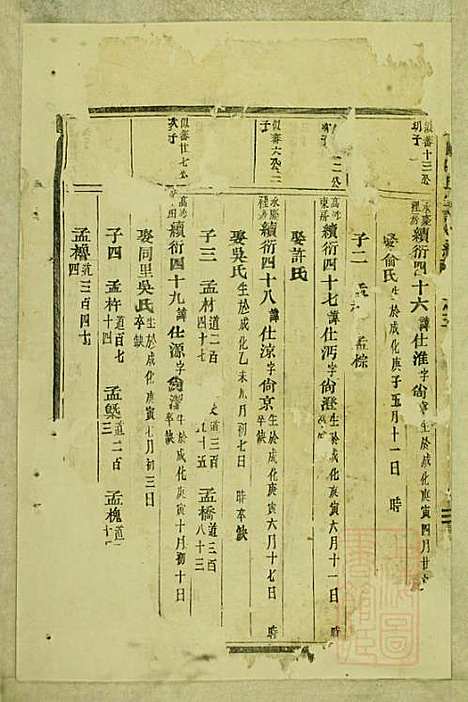 似審十三公
初子
永慶
裡房
續衍四十六諱仕淮字尙寧生於成化庚寅四月廿
娶俞氏生於成化庚子五月十一日 時
子二 孟 孟棕
二公
高沙
東房
續衍四十七諱仕沔字尙澄生於成化庚寅六月十一日 時
娶許氏
似審六公三
子
永慶
裡房
續衍四十八諱仕涼字尙京生於成化庚寅六月十七日 時
卒缺
娶吳氏生於成化乙未九月初七日 時卒缺
子三 孟材道二百四十七 道三百九十五 孟橋道三百八十三
似審廿七公
次子
高沙
續衍四十九諱仕源字尙 生於成化庚寅十月初十日
卒缺
娶同里吳氏生於成化庚寅七月初三日
卒缺
子四 孟杵道百七十四 孟槩道二百三 孟槐道二
孟櫓道三百四十四